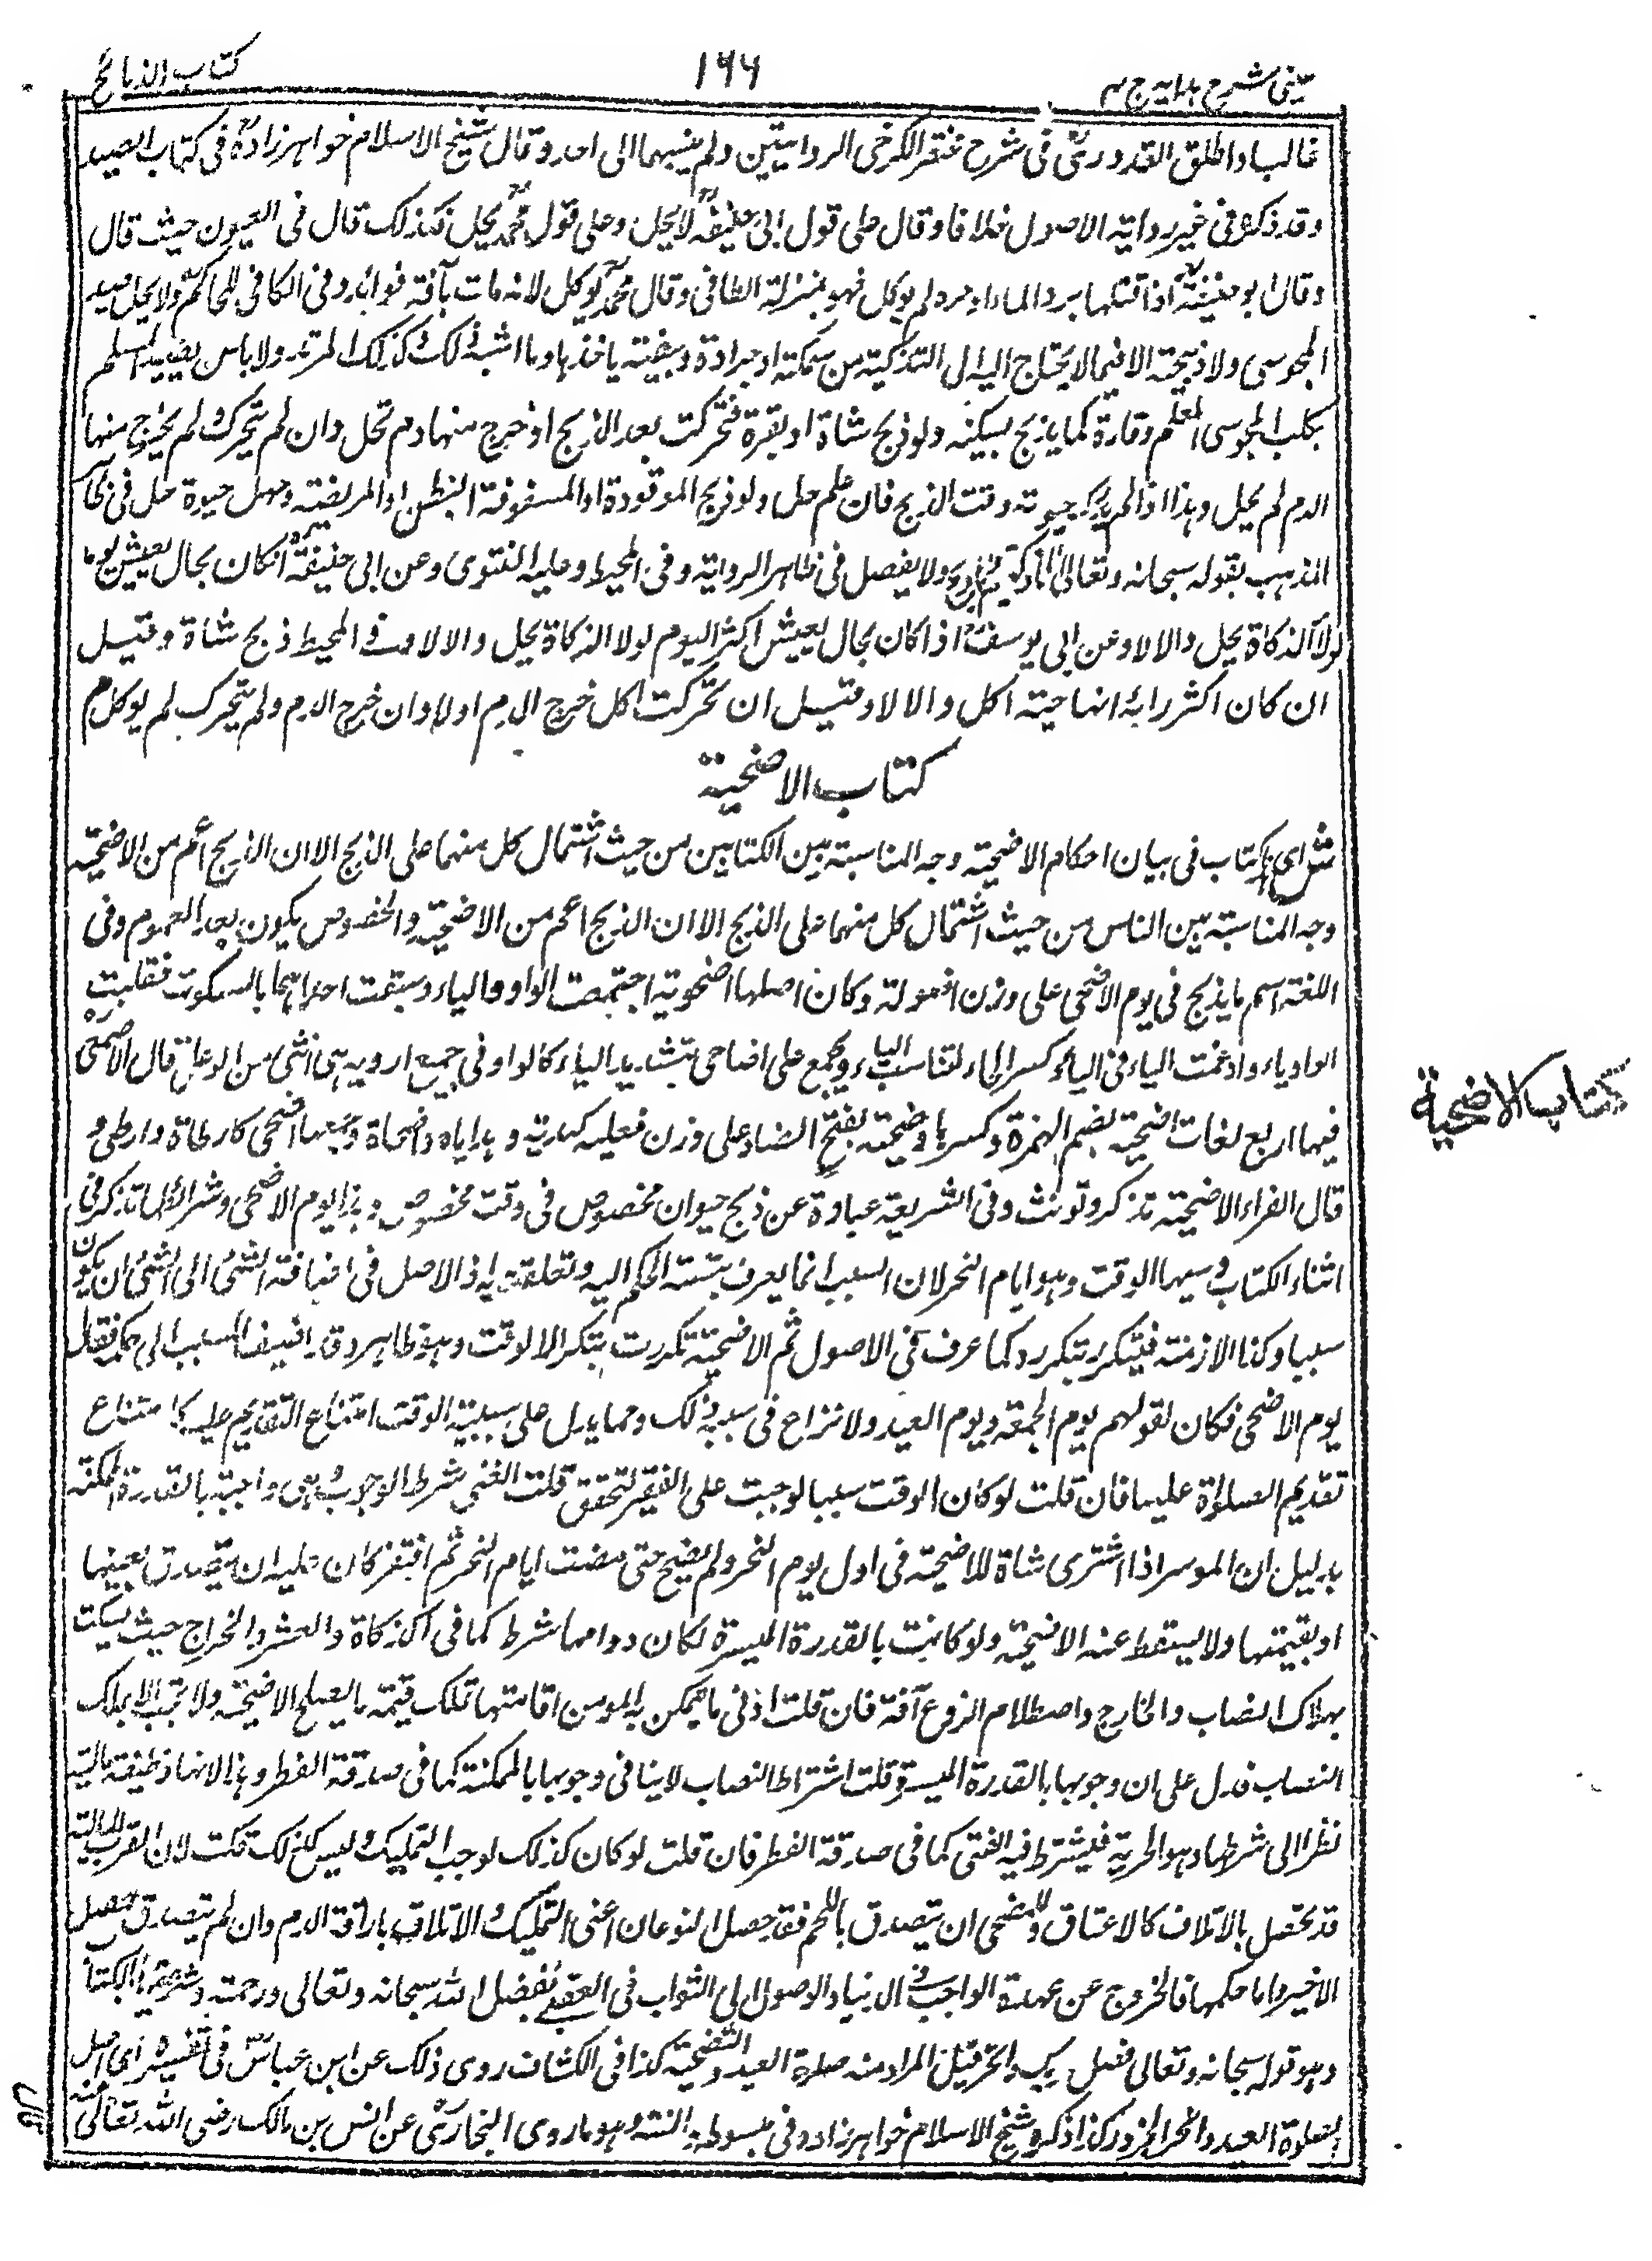 عینی شرح ہدایہ ج ۴
۱۶۶
کتاب الذبائح
غالبا واطلق القدوریؒ فی شرح مختصر الکرخی الروایتین ولم ینسبهما الی احد وقال شیخ الاسلام خواہرزادہؒ فی کتاب الصید
وقد ذکر فی غیر روایة الاصول خلافا وقال علی قول ابی حنیفةؒ لا یحل وعلی قول محمدؒ یحل فکذلک قال فی العیون حیث قال
وقال ابو حنیفةؒ اذا قتلها برد الماء او حره لم یوکل فهو بمنزلة الطافی وقال محمدؒ یوکل لانه مات بآفة فوائد وفی الکافی للحاکمؒ ولا یحل صید
المجوسی ولا ذبیحته الا فیما لا یحتاج الیه الی التذکیة من سمکة او جرادة وبیضة یاخذها وما اشبه ذلک وکذلک المرتد ولا باس بصید المسلم
بکلب المجوسی المعلم وقاره کما یذبح بسکینه ولو ذبح شاة او بقرة فتحرکت بعد الذبح او خرج منها دم تحل وان لم یتحرک ولم یخرج منها
الدم لم یحل وهذا اذا لم یدر حیوته وقت الذبح فان علم حل ولو ذبح الموقوذة او المسفوفة البطن او المریضة وجهل حیوة حل فی
المذهب بقوله سبحانه وتعالی الا ما ذکیتم ولا یفصل فی ظاهر الروایة وفی المحیط وعلیه الفتوی وعن ابی حنیفةؒ ان کان بحال یعیش یوما
لولا الذکاة یحل والا لا وعن ابی یوسفؒ اذا کان بحال یعیش اکثر الیوم لولا الذکاة یحل والا لا وفی المحیط ذبح شاة وقیل
ان کان اکثر رایه انها حیة اکل والا لا وقیل ان تحرکت اکل خرج الدم اولا وان خرج الدم ولم یتحرک لم یوکل م
کتاب الاضحیة
ش ای هذا کتاب فی بیان احکام الاضحیة وجه المناسبة بین الکتابین من حیث اشتمال کل منهما علی الذبح الا ان الذبح اعم من الاضحیة
وجه المناسبة بین الناس من حیث اشتمال کل منهما علی الذبح الا ان الذبح اعم من الاضحیة والخصوص یکون بعد العموم وفی
اللغة اسم ما یذبح فی یوم الاضحی علی وزن افعولة وکان اصلها اضحویة اجتمعت الواو والیاء وسبقت احداهما بالسکون فقلبت
الواو یاء وادغمت الیاء فی الیاء وکسر الحاء لتناسب الیاء ویجمع علی اضاحی بتشدید الیاء کالواو فی جمیع ارویه هی انثی من الوعل قال الاصمعی
فیها اربع لغات اضحیة بضم الهمزة وکسرها وضحیة بفتح الضاد علی وزن فعلیه کهدیة وهدایا واضحاة وجمعها اضحی کارطاة وارطی و
قال الفراء الاضحیة تذکر وتونث وفی الشریعة عبارة عن ذبح حیوان مخصوص فی وقت مخصوص وهذا یوم الاضحی وشرائطها تذکر فی
اثناء الکتاب وسببها الوقت وهو ایام النحر لان السبب انما یعرف بنسبة الحکم الیه وتعلقه به اذ الاصل فی اضافة الشئ الی الشئ ان یکون
سببا وکذا الازمنة فیتکرر بتکررہ کما عرف فی الاصول ثم الاضحیة تکررت بتکرار الوقت وهو ظاهر وقد اضیف السبب الی حکمه فقال
یوم الاضحی فکان لقولهم یوم الجمعة ویوم العید ولا نزاع فی سببیة ذلک ومما یدل علی سببیة الوقت امتناع التقدیم علیه کامتناع
تقدیم الصلوة علیها فان قلت لو کان الوقت سببا لوجبت علی الفقیر لتحقق قلت الغنی شرط الوجوب وهی واجبة بالقدرة الممکنة
بدلیل ان الموسر اذا اشتری شاة للاضحیة فی اول یوم النحر ولم یضح حتی مضت ایام النحر ثم افتقر کان علیه ان یتصدق بعینها
او بقیمتها ولا یسقط عنه الاضحیة ولو کانت بالقدرة المیسرة لکان دوامها شرط کما فی الزکاة والعشر والخراج حیث یسقط
بهلاک النصاب والخارج واصطلام الزرع آفة فان قلت ادنی ما یتمکن به المومن اقامتها تملک قیمة ما یصلح للاضحیة ولا تجب الا بملک
النصاب فدل علی ان وجوبها بالقدرة المیسرة قلت اشتراط النصاب لا ینافی وجوبها بالممکنة کما فی صدقة الفطر وهذا لانها وظیفة مالیة
نظرا الی شرطها وهو الحریة فیشترط فیه الغنی کما فی صدقة الفطر فان قلت لو کان کذلک لوجب التملیک ولیس کذلک قلت لان القرب المالیة
قد تحصل بالاتلاف کالاعتاق وللمضحی ان یتصدق باللحم فقد حصل النوعان اعنی التملیک والاتلاف باراقة الدم وان لم یتصدق حصل
الاخیر واما حکمها فالخروج عن عهدة الواجب فی الدنیا والوصول الی الثواب فی العقبی بفضل الله سبحانه وتعالی ورحمته وشرعیتها الکتاب
وهو قوله سبحانه وتعالی فصل لربک وانحر قیل المراد منه صلوة العید والتضحیة کذا فی الکشاف روی ذلک عن ابن عباسؓ فی تفسیره ای اصل
الصلوة العید وانحر الجزور کذا ذکره شیخ الاسلام خواهرزاده فی مبسوطه والسنة وهو ما روی البخاریؒ عن انس بن مالک رضی الله تعالی عنه
قال
کتاب الاضحیة